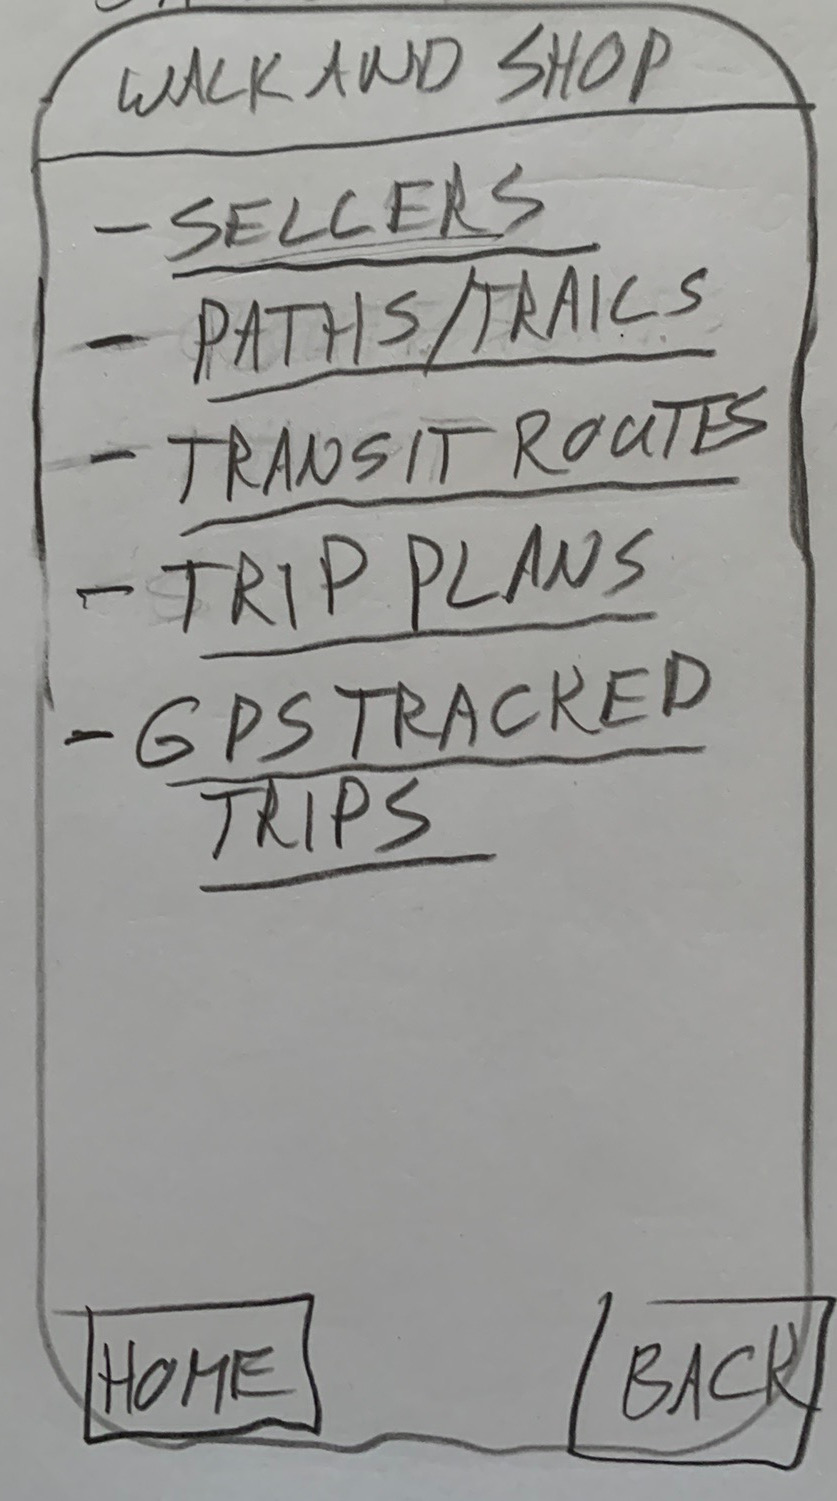 WALK AND SHOP
- SELLERS
- PATHS/TRAILS
- TRANSIT ROUTES
- TRIP PLANS
- GPS TRACKED
TRIPS
HOME BACK